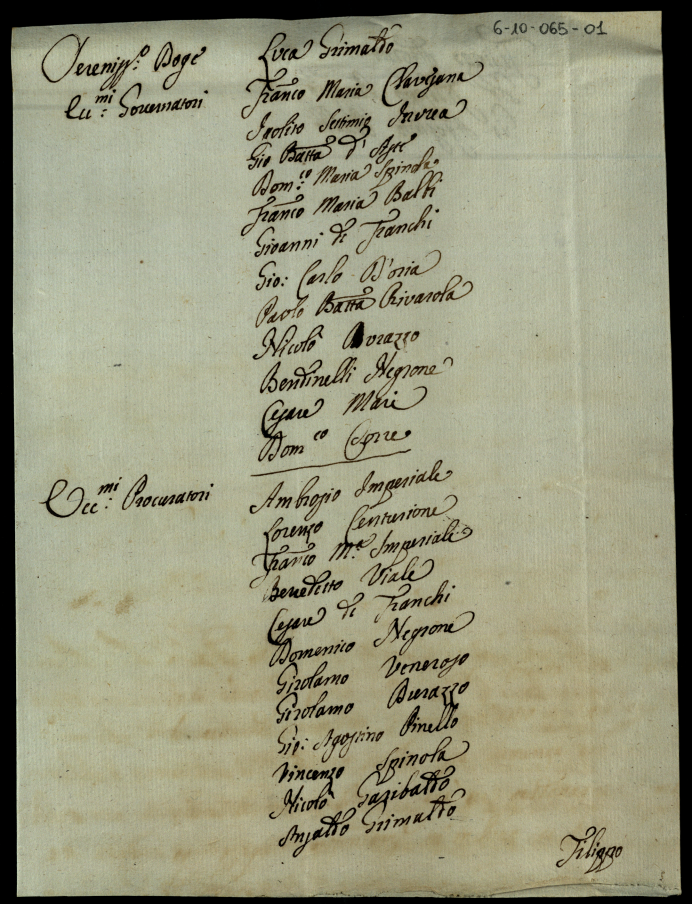 6-10-065-01
Sereniss.o Doge Luca Grimaldo
Ecc.mi Governatori Franco Maria Clavesana
Ipolito Settimio Invrea
Gio Batta d'Aste
Dom.co Maria Spinola
Franco Maria Balbi
Giovanni de Franchi
Gio: Carlo D'oria
Paolo Batta Rivarola
Nicolò Durazzo
Bendinelli Negrone
Cesare Mari
Dom.co
Ecc.mi Procuratori Ambrosio Imperiale
Lorenzo Centurione
Franco M.a Imperiale
Benedetto Viale
Cesare de Franchi
Domenico Negrone
Girolamo Veneroso
Girolamo Durazzo
Gio: Agostino Pinello
Vincenzo Spinola
Nicolò Garibaldo
Ansaldo Grimaldo
Filippo